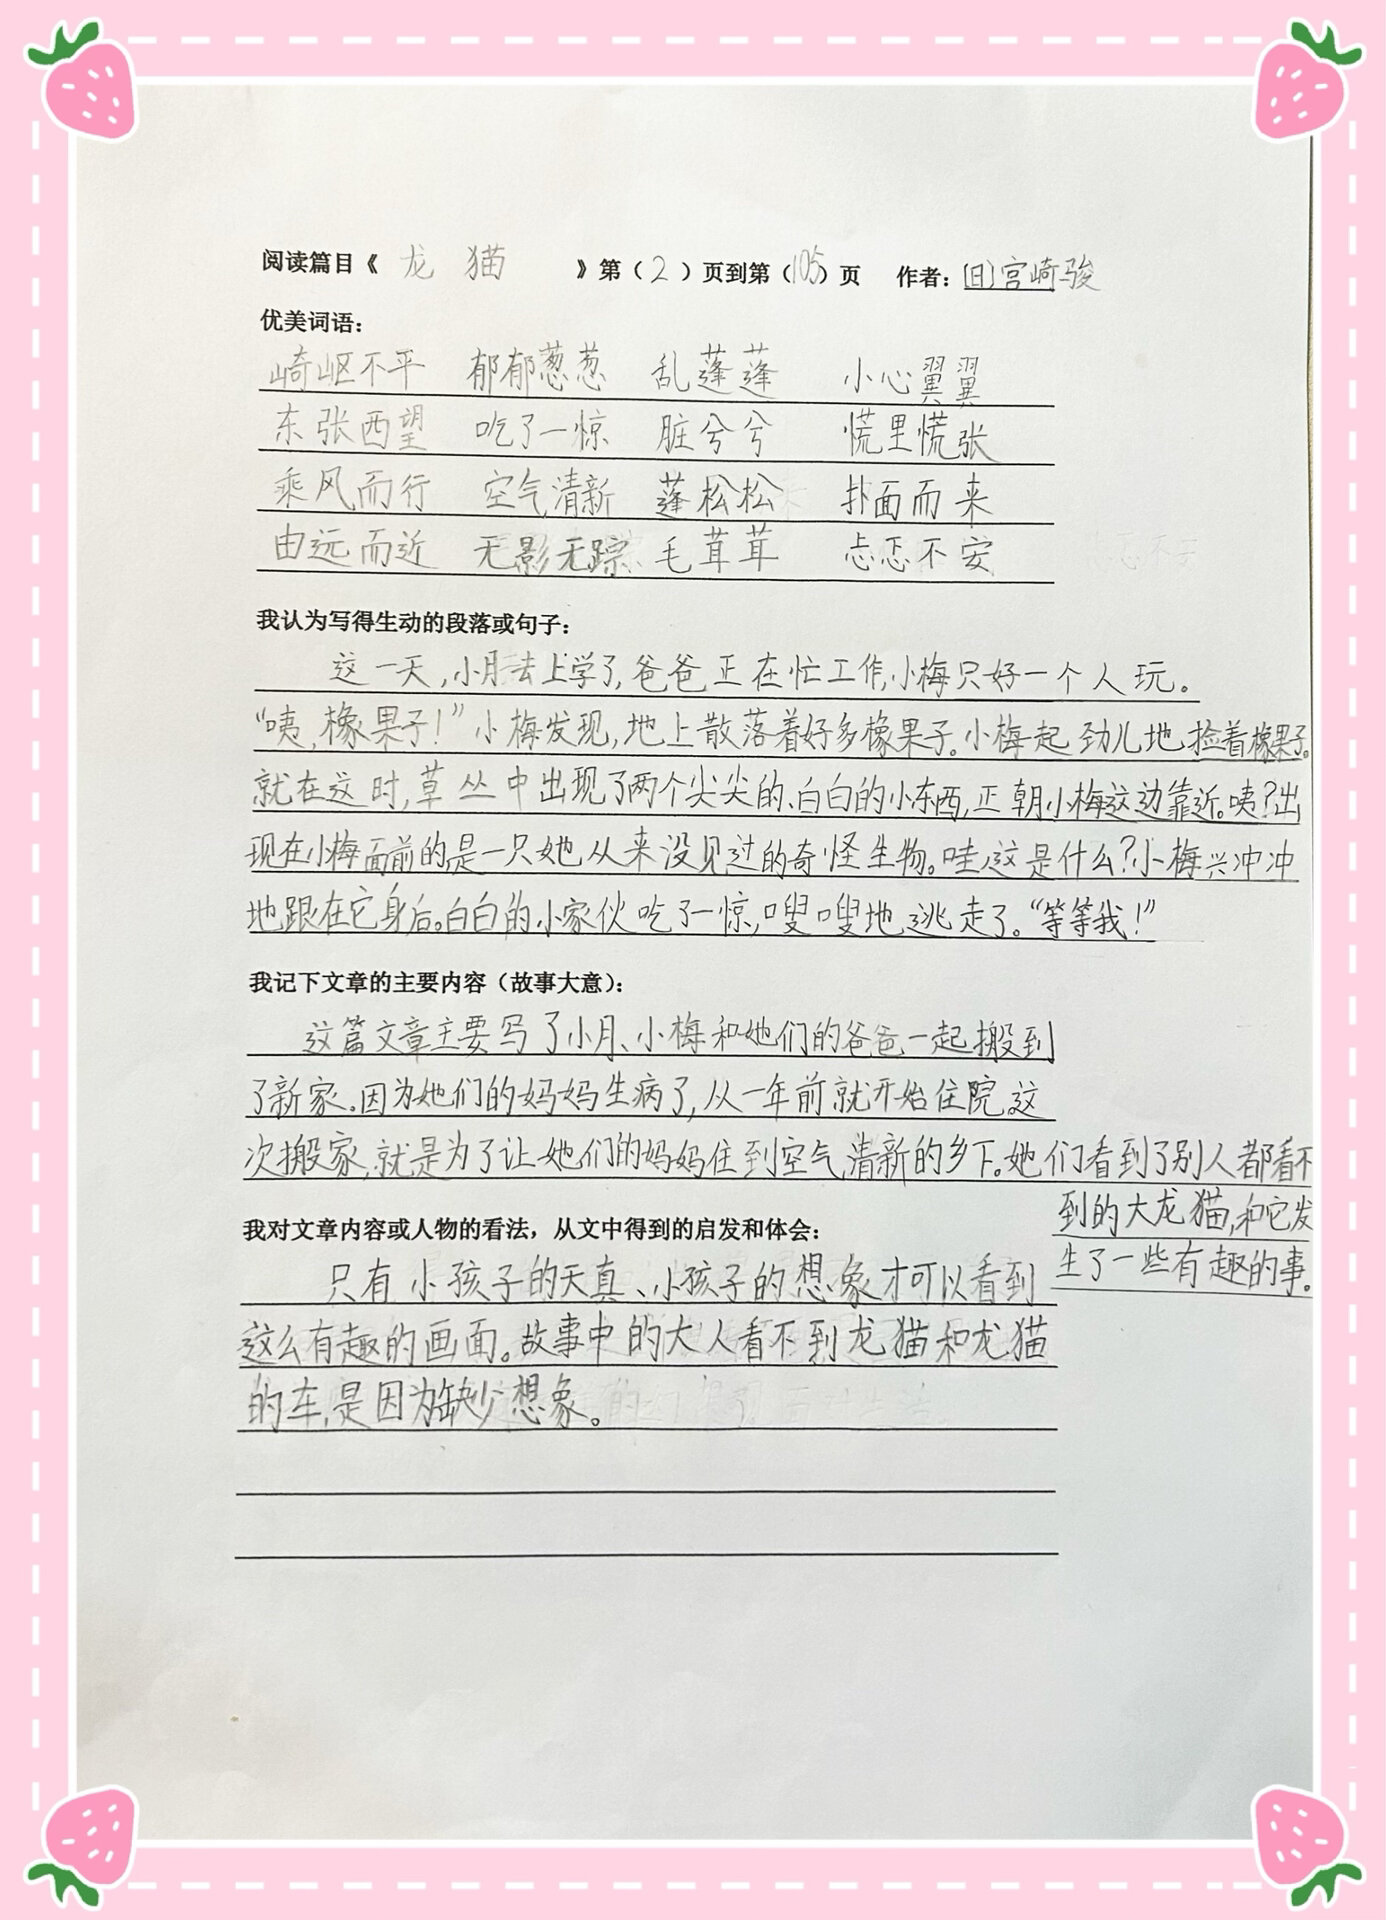 阅读篇目《 龙 猫 》第（2）页到第（105）页 作者：[日]宫崎骏
优美词语：
崎岖不平 郁郁葱葱 乱蓬蓬 小心翼翼
东张西望 吃了一惊 脏兮兮 慌里慌张
乘风而行 空气清新 蓬松松 扑面而来
由远而近 无影无踪 毛茸茸 忐忑不安
我认为写得生动的段落或句子：
这一天，小月去上学了，爸爸正在忙工作，小梅只好一个人玩。
“咦，橡果子！”小梅发现，地上散落着好多橡果子。小梅起劲儿地捡着橡果子。
就在这时，草丛中出现了两个尖尖的、白白的小东西，正朝小梅这边靠近。咦？出
现在小梅面前的是一只她从来没见过的奇怪生物。哇，这是什么？小梅兴冲冲
地跟在它身后。白白的小家伙吃了一惊，嗖嗖地逃走了。“等等我！”
我记下文章的主要内容（故事大意）：
这篇文章主要写了小月、小梅和她们的爸爸一起搬到
了新家。因为她们的妈妈生病了，从一年前就开始住院，这
次搬家，就是为了让她们的妈妈住到空气清新的乡下。她们看到了别人都看不
到的大龙猫，和它发
生了一些有趣的事。
我对文章内容或人物的看法，从文中得到的启发和体会：
只有小孩子的天真、小孩子的想象才可以看到
这么有趣的画面。故事中的大人看不到龙猫和龙猫
的车，是因为缺少想象。